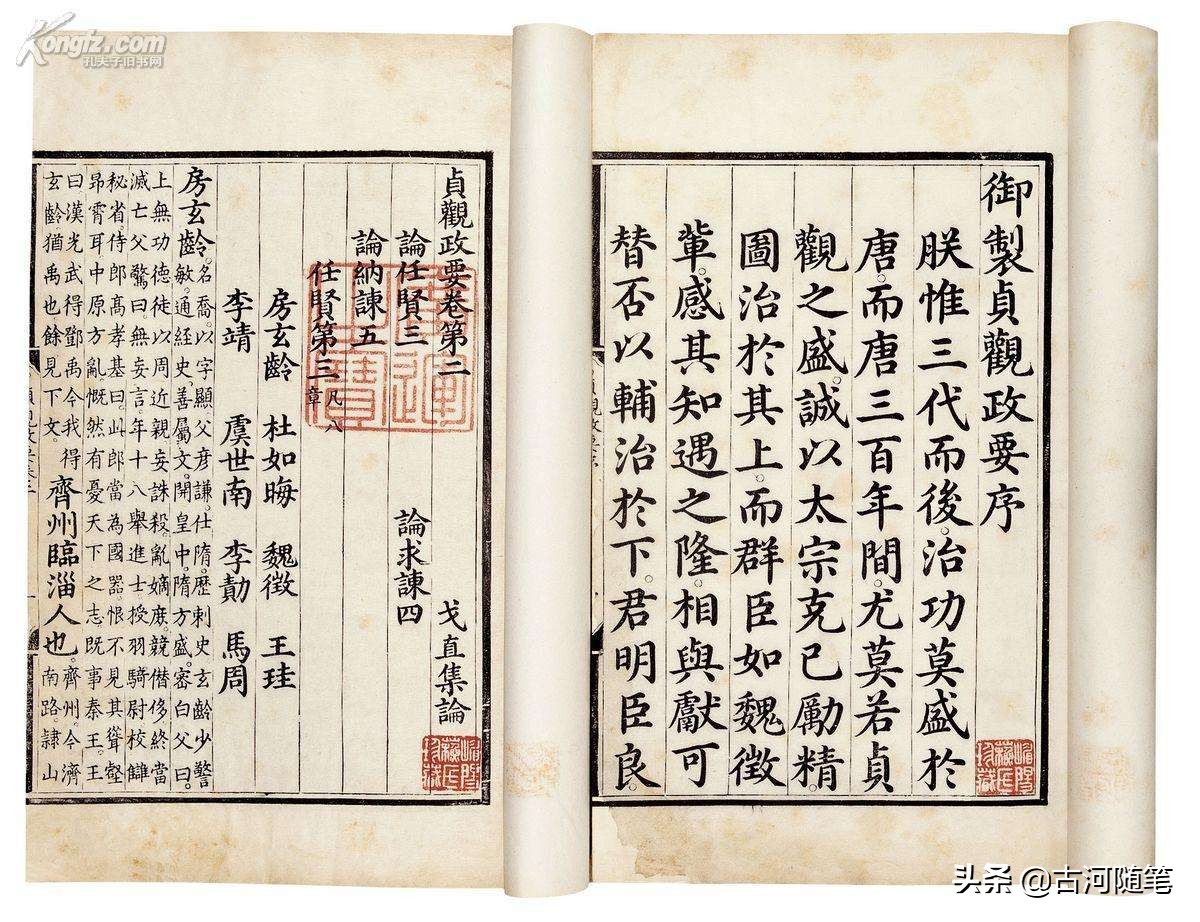 Kongfz.com
孔夫子旧书网
御製貞觀政要序
朕惟三代而後。治功莫盛於
唐。而唐三百年間。尤莫若貞
觀之盛。誠以太宗克己勵精。
圖治於其上。而群臣如魏徵
輩。感其知遇之隆。相與獻可
替否以輔治於下。君明臣良。
貞觀政要卷第二 戈直集論
論任賢三 論求諫四
論納諫五
任賢第三 凡八章
房玄齡 杜如晦 魏徵 王珪
李靖 虞世南 李勣 馬周
房玄齡。名喬。以字顯。父彥謙。仕隋。歷刺史。玄齡少警
敏。通經史。善屬文。開皇中。隋方盛。密白父曰。
上無功德。徒以周近親。妄誅殺。亂嫡庶。競僭侈。終當
滅亡。父驚曰。無妄言。年十八。舉進士。授羽騎尉。校讎
秘省。侍郎高孝基曰。此郎當為國器。恨不見其聳壑
昂霄耳。中原方亂。慨然有憂天下之志。既事秦王。王
曰。漢光武得鄧禹。今我得
玄齡。猶禹也。餘見下文。
齊州臨淄人也。
齊州。今濟
南路。隸山
廣運之寶
头条 @古河随笔